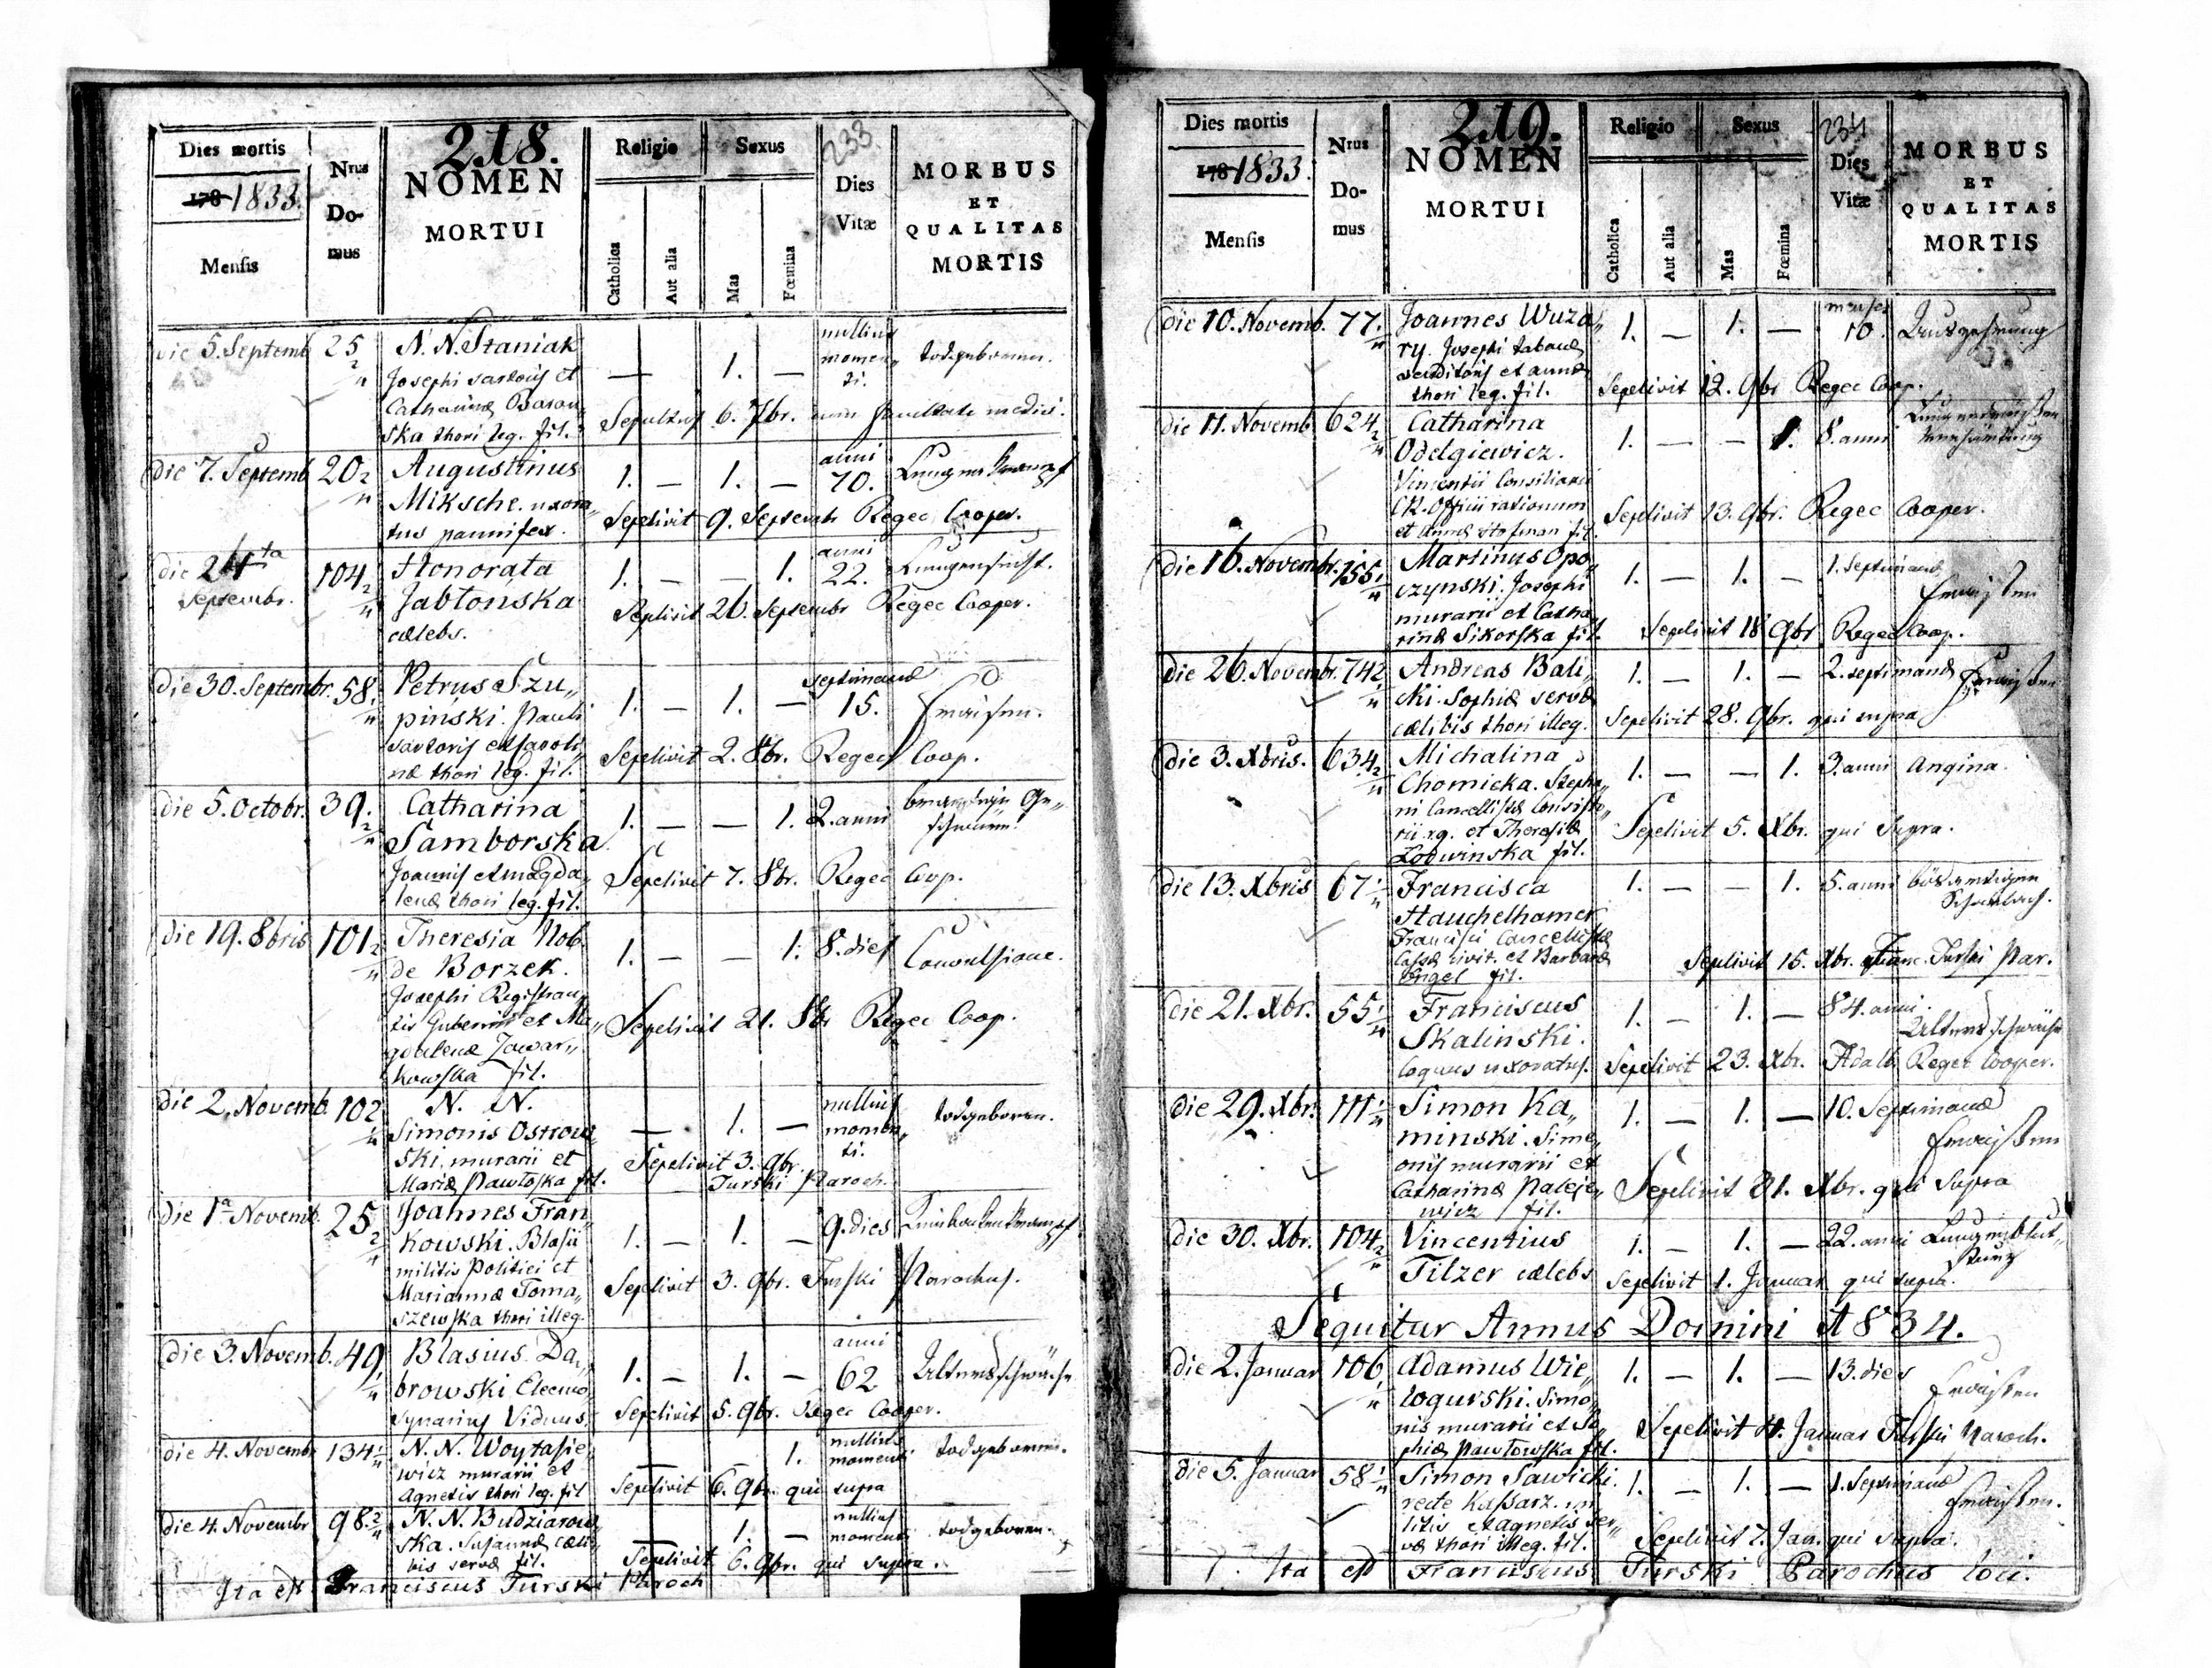 218.
233.
Dies mortis
178 1833.
Mensis
Nrus
Do-
mus
NOMEN
MORTUI
Religio
Catholica
Aut alia
Sexus
Mas
Fœmina
Dies
Vitæ
MORBUS
ET
QUALITAS
MORTIS
die 5. Septemb 25 2/4 N. N. Staniak — 1. — nullius
Josephi sartoris et momen„ todgeboren.
Catharinæ Baran„ ti.
ska thori leg. fil. Sepultus 6. 7br. cum facultate medici.
die 7. Septemb 20 2/4 Augustinus 1. — 1. — anni 70. Lungenkrampf
Miksche. uxora„
tus pannifex. Sepelivit 9. Septemb Regec Cooper.
die 24ta Septembr. 104 2/4 Honorata 1. — — 1. anni 22. Lungensucht.
Jabłonska
cælebs. Sepelivit 26. Septembr Regec Cooper.
die 30. Septembr. 58. Petrus Szu„ 1. — 1. — septimanæ 15. Fraisen.
piński. Pauli
sartoris et Saroli„
næ thori leg. fil. Sepelivit 2. 8br. Regec Coop.
die 5. Octobr. 39. 2/4 Catharina 1. — — 1. 2. anni
Samborska
Joannis et Magda„
lenæ thori leg. fil. Sepelivit 7. 8br. Regec Coop.
die 19. 8bris 101 2/4 Theresia Nob. 1. — — 1. 8. dies Convulsione.
de Borzek.
Josephi Registran„
tis Gubernii et Ma„ Sepelivit 21. 8br Regec Coop.
gdalenæ Zawar„
kowska fil.
die 2. Novemb. 102 N. N. — 1. — nullius todgeboren.
Simonis Ostrow„ momen„
ski. murarii et ti.
Mariæ Pawłoska fil. Sepelivit 3. 9br. Turski Paroch.
die 1a Novemb. 25 2/4 Joannes Fran„ 1. — 1. — 9. dies Kinbackenkrampf
kowski. Blasii
militis Politiei et
Mariannæ Toma„ Sepelivit 3. 9br. Turski Parochus.
szewska thori illeg.
die 3. Novemb. 49. Blasius Da„ 1. — 1. — anni 62 Altersschwäche
browski Eleemo„
synarius Viduus. Sepelivit 5. 9br. Regec Cooper.
die 4. Novembr 134 1/4 N. N. Woytasie„ — 1. nullius todgeboren.
wicz murarii et momenti
Agnetis thori leg. fil Sepelivit 6. 9br. qui supra
die 4. Novembr 98. 2/4 N. N. Budziarow„ — 1. — nullius todgeboren.
ska. Susannæ cæli„ momenti
bis servæ fil. Sepelivit 6. 9br. qui supra.
Ita est Franciscus Turski Paroch
219.
234
Dies mortis
178 1833.
Mensis
Nrus
Do-
mus
NOMEN
MORTUI
Religio
Catholica
Aut alia
Sexus
Mas
Fœmina
Dies
Vitæ
MORBUS
ET
QUALITAS
MORTIS
die 10. Novemb. 77. Joannes Wuza„ 1. — 1. — menses 10. Auszehrung
ry. Josephi tabacæ
venditoris et Annæ
thori leg. fil. Sepelivit 12. 9br Regec Coop.
die 11. Novemb. 624 2/4 Catharina 1. — — 1. 8. anni
Odelgiewicz.
Vincentii Consiliarii
CR. Officii rationum Sepelivit 13. 9br. Regec Cooper.
et Annæ Hofman fil.
die 16. Novembr. 155 1/4 Martinus Opo„ 1. — 1. — 1. Septimana
czynski. Josephi Fraisen
murarii et Catha„
rinæ Sikorska fil. Sepelivit 18 9br Regec Coop.
die 26. Novembr. 742 Andreas Bali„ 1. — 1. — 2. septimanæ Fraisen
cki. Sophiæ servæ
cælibis thori illeg. Sepelivit 28. 9br. qui supra
die 3. Xbris. 634 2/4 Michalina 1. — — 1. 3. anni Angina.
Chomicka. Stepha„
ni Cancellistæ Consisto„
rii r.g. et Theresiæ Sepelivit 5. Xbr. qui Supra.
Lodwinska fil.
die 13. Xbris 67 1/4 Francisca 1. — — 1. 5. anni bösartigen
Hauchelhamer Scharlach.
Francisci Cancellistæ
Cassæ civit. et Barbaræ Sepelivit 15. Xbr. Franc. Turski Par.
Engel fil.
die 21. Xbr. 55 1/4 Franciscus 1. — 1. — 84. anni.
Skalinski. Altersschwäche
Coquus uxoratus. Sepelivit 23. Xbr. Adalb. Regec Cooper.
die 29. Xbr. 111 1/4 Simon Ka„ 1. — 1. — 10. Septimanæ
minski. Sime„ Fraisen
onis murarii et
Catharinæ Paleje„ Sepelivit 31. Xbr. qui Supra
wicz fil.
die 30. Xbr. 104 2/4 Vincentius 1. — 1. — 22. anni Lungenblut„
Tilzer cælebs Sepelivit 1. Januar qui supra. sturz
Sequitur Annus Domini 1834.
die 2. Januar 106 Adamus Wie„ 1. — 1. — 13. dies
logurski. Simo„ Fraisen
nis murarii et So„
phiæ Pawłowska fil. Sepelivit 4. Januar Turski Paroch.
die 5. Januar 58 1/4 Simon Sawicki. 1. — 1. — 1. Septimanæ
recte Kassarz. mi„ Fraisen.
litis et Agnetis ser„
væ thori illeg. fil. Sepelivit 7. Jan. qui Supra.
Ita est Franciscus Turski Parochus loci.